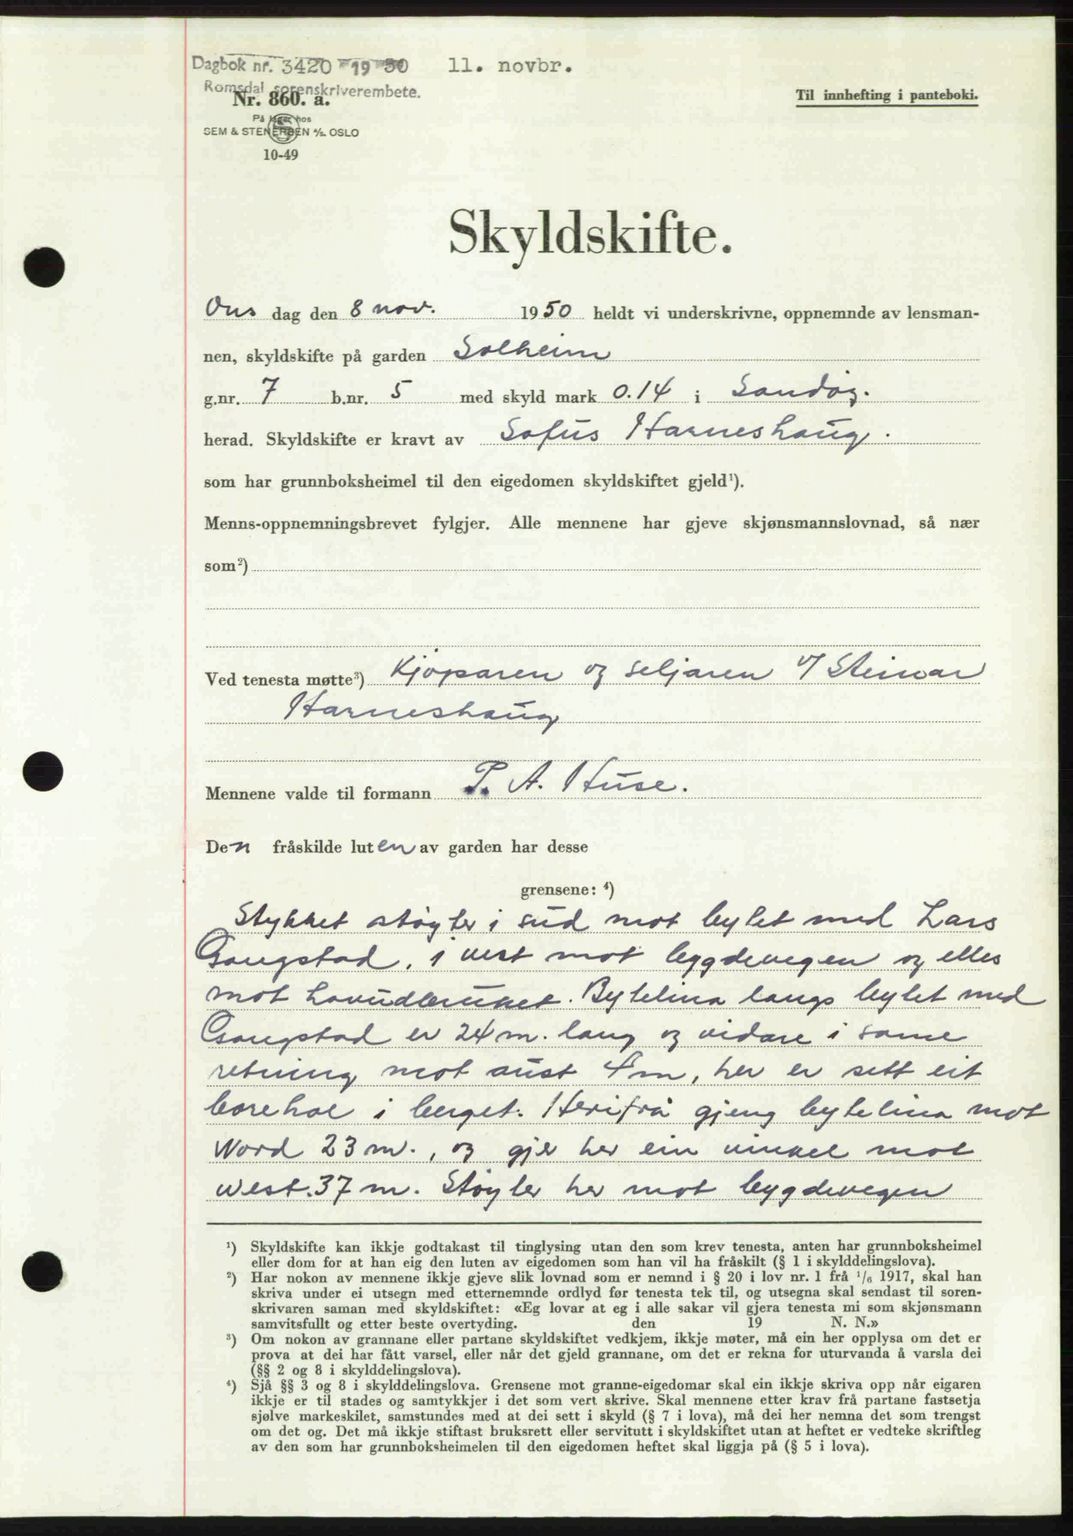 Dagbok nr. 3420 1950 11. novbr.
Romsdal sorenskriverembete.
Nr. 860. a.
Til innhefting i panteboki.
På lager hos
SEM & STENERSEN A/S. OSLO
10-49
Skyldskifte.
Ons dag den 8 nov. 1950 heldt vi underskrivne, oppnemnde av lensman-
nen, skyldskifte på garden Solheim
g.nr. 7 b.nr. 5 med skyld mark 0.14 i Sandøy.
herad. Skyldskifte er kravt av Sofus Harneshaug.
som har grunnboksheimel til den eigedomen skyldskiftet gjeld¹).
Menns-oppnemningsbrevet fylgjer. Alle mennene har gjeve skjønsmannslovnad, så nær
som²)
Ved tenesta møtte³) Kjøparen og seljaren v/ Steinar
Harneshaug
Mennene valde til formann P. A. Huse.
Den fråskilde luten av garden har desse
grensene: ⁴)
Stykket støyter i sud mot bytet med Lars
Gangstad, i vest mot bygdevegen og elles
mot hovudbruket. Bytelina langs bytet med
Gangstad er 24 m. lang og vidare i same
retning mot aust 4 m, her er sett eit
borehol i berget. Herifrå gjeng bytelina mot
Nord 23 m., og gjer her ein vinkel mot
west. 37 m. Støyter her mot bygdevegen
¹) Skyldskifte kan ikkje godtakast til tinglysing utan den som krev tenesta, anten har grunnboksheimel
eller dom for at han eig den luten av eigedomen som han vil ha fråskilt (§ 1 i skylddelingslova).
²) Har nokon av mennene ikkje gjeve slik lovnad som er nemnd i § 20 i lov nr. 1 frå ¹/₆ 1917, skal han
skriva under ei utsegn med etternemnde ordlyd før tenesta tek til, og utsegna skal sendast til soren-
skrivaren saman med skyldskiftet: «Eg lovar at eg i alle sakar vil gjera tenesta mi som skjønsmann
samvitsfullt og etter beste overtyding. den 19 N. N.»
³) Om nokon av grannane eller partane skyldskiftet vedkjem, ikkje møter, må ein her opplysa om det er
prova at dei har fått varsel, eller når det gjeld grannane, om det er rekna for uturvanda å varsla dei
(§§ 2 og 8 i skylddelingslova).
⁴) Sjå §§ 3 og 8 i skylddelingslova. Grensene mot granne-eigedomar skal ein ikkje skriva opp når eigaren
ikkje er til stades og samtykkjer i det som vert skrive. Skal mennene etter krav frå partane fastsetja
sjølve markeskilet, samstundes med at dei sett i skyld (§ 7 i lova), må dei her nemna det som trengst
om det og. Det må ikkje stiftast bruksrett eller servitutt i skyldskiftet utan at heftet er vedteke skriftleg
av den som har grunnboksheimelen til den eigedomen heftet skal liggja på (§ 5 i lova).